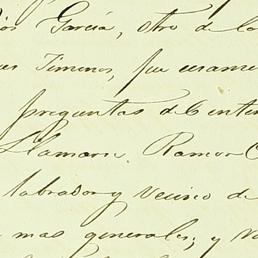 García, otro de lo
Timenes, fue
preguntas del inter
Llamarse Ramon C
labrador y Vecino de
mas generales; y